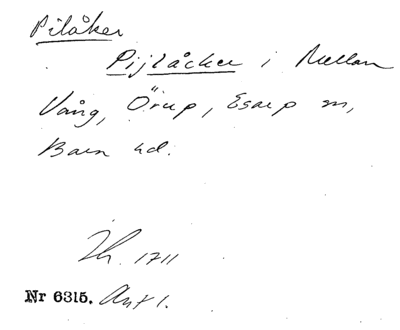 Pilåker
Pijlåcker i Mellan
Vång, Örup, Esarp sn,
Bara hd.
Jb. 1711
Nr 6315. Ant 1.